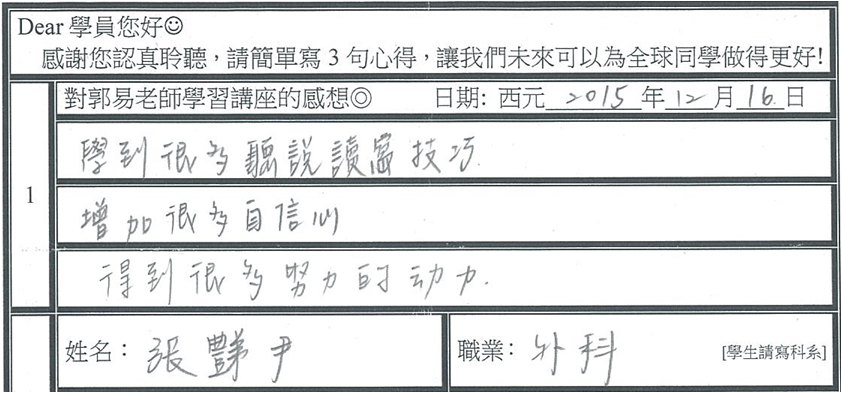 Dear 學員您好☺
感謝您認真聆聽，請簡單寫 3 句心得，讓我們未來可以為全球同學做得更好!
對郭易老師學習講座的感想◎ 日期: 西元 2015 年 12 月 16 日
1
學到很多聽說讀寫技巧.
增加很多自信心
得到很多努力的动力.
姓名： 張艷尹 職業： 外科 [學生請寫科系]